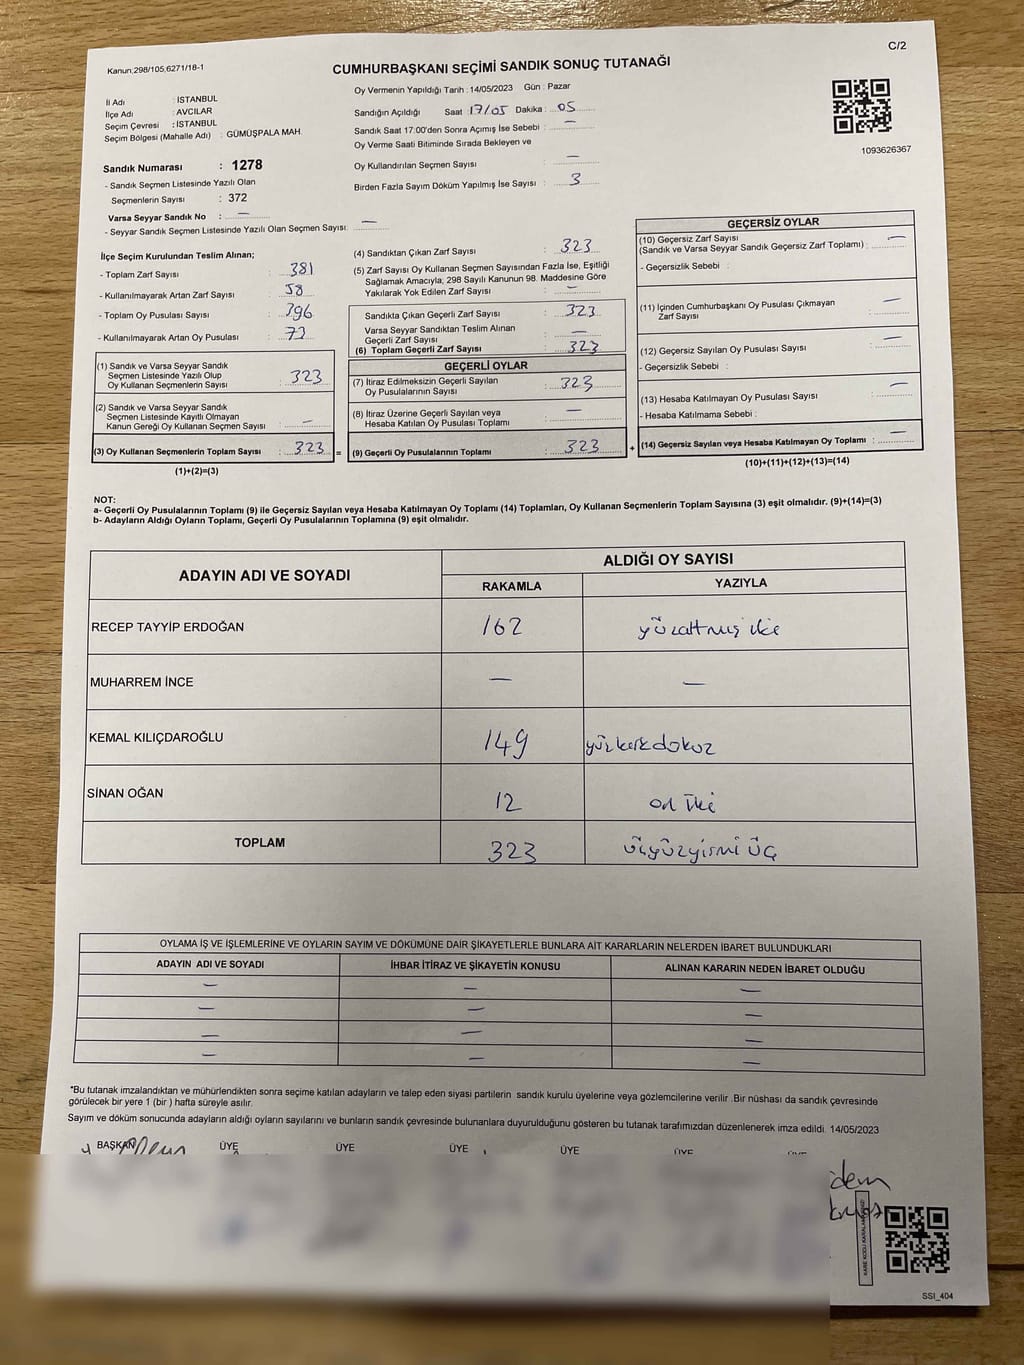 Kanun:298/105,6271/18-1
C/2
CUMHURBAŞKANI SEÇİMİ SANDIK SONUÇ TUTANAĞI
İl Adı : İSTANBUL
İlçe Adı : AVCILAR
Seçim Çevresi : İSTANBUL
Seçim Bölgesi (Mahalle Adı) : GÜMÜŞPALA MAH.
Sandık Numarası : 1278
- Sandık Seçmen Listesinde Yazılı Olan
Seçmenlerin Sayısı : 372
Varsa Seyyar Sandık No : —
- Seyyar Sandık Seçmen Listesinde Yazılı Olan Seçmen Sayısı: —
Oy Vermenin Yapıldığı Tarih : 14/05/2023 Gün : Pazar
Sandığın Açıldığı Saat : 17/05 Dakika : 05
Sandık Saat 17:00'den Sonra Açımış İse Sebebi : —
Oy Verme Saati Bitiminde Sırada Bekleyen ve
Oy Kullandırılan Seçmen Sayısı : —
Birden Fazla Sayım Döküm Yapılmış İse Sayısı : 3
1093626367
İlçe Seçim Kurulundan Teslim Alınan;
- Toplam Zarf Sayısı : 381
- Kullanılmayarak Artan Zarf Sayısı : 58
- Toplam Oy Pusulası Sayısı : 396
- Kullanılmayarak Artan Oy Pusulası : 73
(1) Sandık ve Varsa Seyyar Sandık
Seçmen Listesinde Yazılı Olup
Oy Kullanan Seçmenlerin Sayısı : 323
(2) Sandık ve Varsa Seyyar Sandık
Seçmen Listesinde Kayıtlı Olmayan
Kanun Gereği Oy Kullanan Seçmen Sayısı : —
(3) Oy Kullanan Seçmenlerin Toplam Sayısı : 323 =
(1)+(2)=(3)
(4) Sandıktan Çıkan Zarf Sayısı : 323
(5) Zarf Sayısı Oy Kullanan Seçmen Sayısından Fazla İse, Eşitliği
Sağlamak Amacıyla; 298 Sayılı Kanunun 98. Maddesine Göre
Yakılarak Yok Edilen Zarf Sayısı : —
Sandıkta Çıkan Geçerli Zarf Sayısı : 323
Varsa Seyyar Sandıktan Teslim Alınan
Geçerli Zarf Sayısı : —
(6) Toplam Geçerli Zarf Sayısı : 323
GEÇERLİ OYLAR
(7) İtiraz Edilmeksizin Geçerli Sayılan
Oy Pusulalarının Sayısı : 323
(8) İtiraz Üzerine Geçerli Sayılan veya
Hesaba Katılan Oy Pusulası Toplamı : —
(9) Geçerli Oy Pusulalarının Toplamı : 323 +
GEÇERSİZ OYLAR
(10) Geçersiz Zarf Sayısı
(Sandık ve Varsa Seyyar Sandık Geçersiz Zarf Toplamı) : —
- Geçersizlik Sebebi :
(11) İçinden Cumhurbaşkanı Oy Pusulası Çıkmayan
Zarf Sayısı : —
(12) Geçersiz Sayılan Oy Pusulası Sayısı : —
- Geçersizlik Sebebi :
(13) Hesaba Katılmayan Oy Pusulası Sayısı : —
- Hesaba Katılmama Sebebi :
(14) Geçersiz Sayılan veya Hesaba Katılmayan Oy Toplamı : —
(10)+(11)+(12)+(13)=(14)
NOT:
a- Geçerli Oy Pusulalarının Toplamı (9) ile Geçersiz Sayılan veya Hesaba Katılmayan Oy Toplamı (14) Toplamları, Oy Kullanan Seçmenlerin Toplam Sayısına (3) eşit olmalıdır. (9)+(14)=(3)
b- Adayların Aldığı Oyların Toplamı, Geçerli Oy Pusulalarının Toplamına (9) eşit olmalıdır.
ADAYIN ADI VE SOYADI ALDIĞI OY SAYISI
RAKAMLA YAZIYLA
RECEP TAYYİP ERDOĞAN 162 yüzaltmış iki
MUHARREM İNCE — —
KEMAL KILIÇDAROĞLU 149 yüzkırkdokuz
SİNAN OĞAN 12 on iki
TOPLAM 323 üçyüzyirmi üç
OYLAMA İŞ VE İŞLEMLERİNE VE OYLARIN SAYIM VE DÖKÜMÜNE DAİR ŞİKAYETLERLE BUNLARA AİT KARARLARIN NELERDEN İBARET BULUNDUKLARI
ADAYIN ADI VE SOYADI İHBAR İTİRAZ VE ŞİKAYETİN KONUSU ALINAN KARARIN NEDEN İBARET OLDUĞU
— — —
— — —
— — —
— — —
*Bu tutanak imzalandıktan ve mühürlendikten sonra seçime katılan adayların ve talep eden siyasi partilerin sandık kurulu üyelerine veya gözlemcilerine verilir .Bir nüshası da sandık çevresinde
görülecek bir yere 1 (bir ) hafta süreyle asılır.
Sayım ve döküm sonucunda adayların aldığı oyların sayılarını ve bunların sandık çevresinde bulunanlara duyurulduğunu gösteren bu tutanak tarafımızdan düzenlenerek imza edildi. 14/05/2023
BAŞKAN ÜYE ÜYE ÜYE ÜYE ÜYE
SSI_404